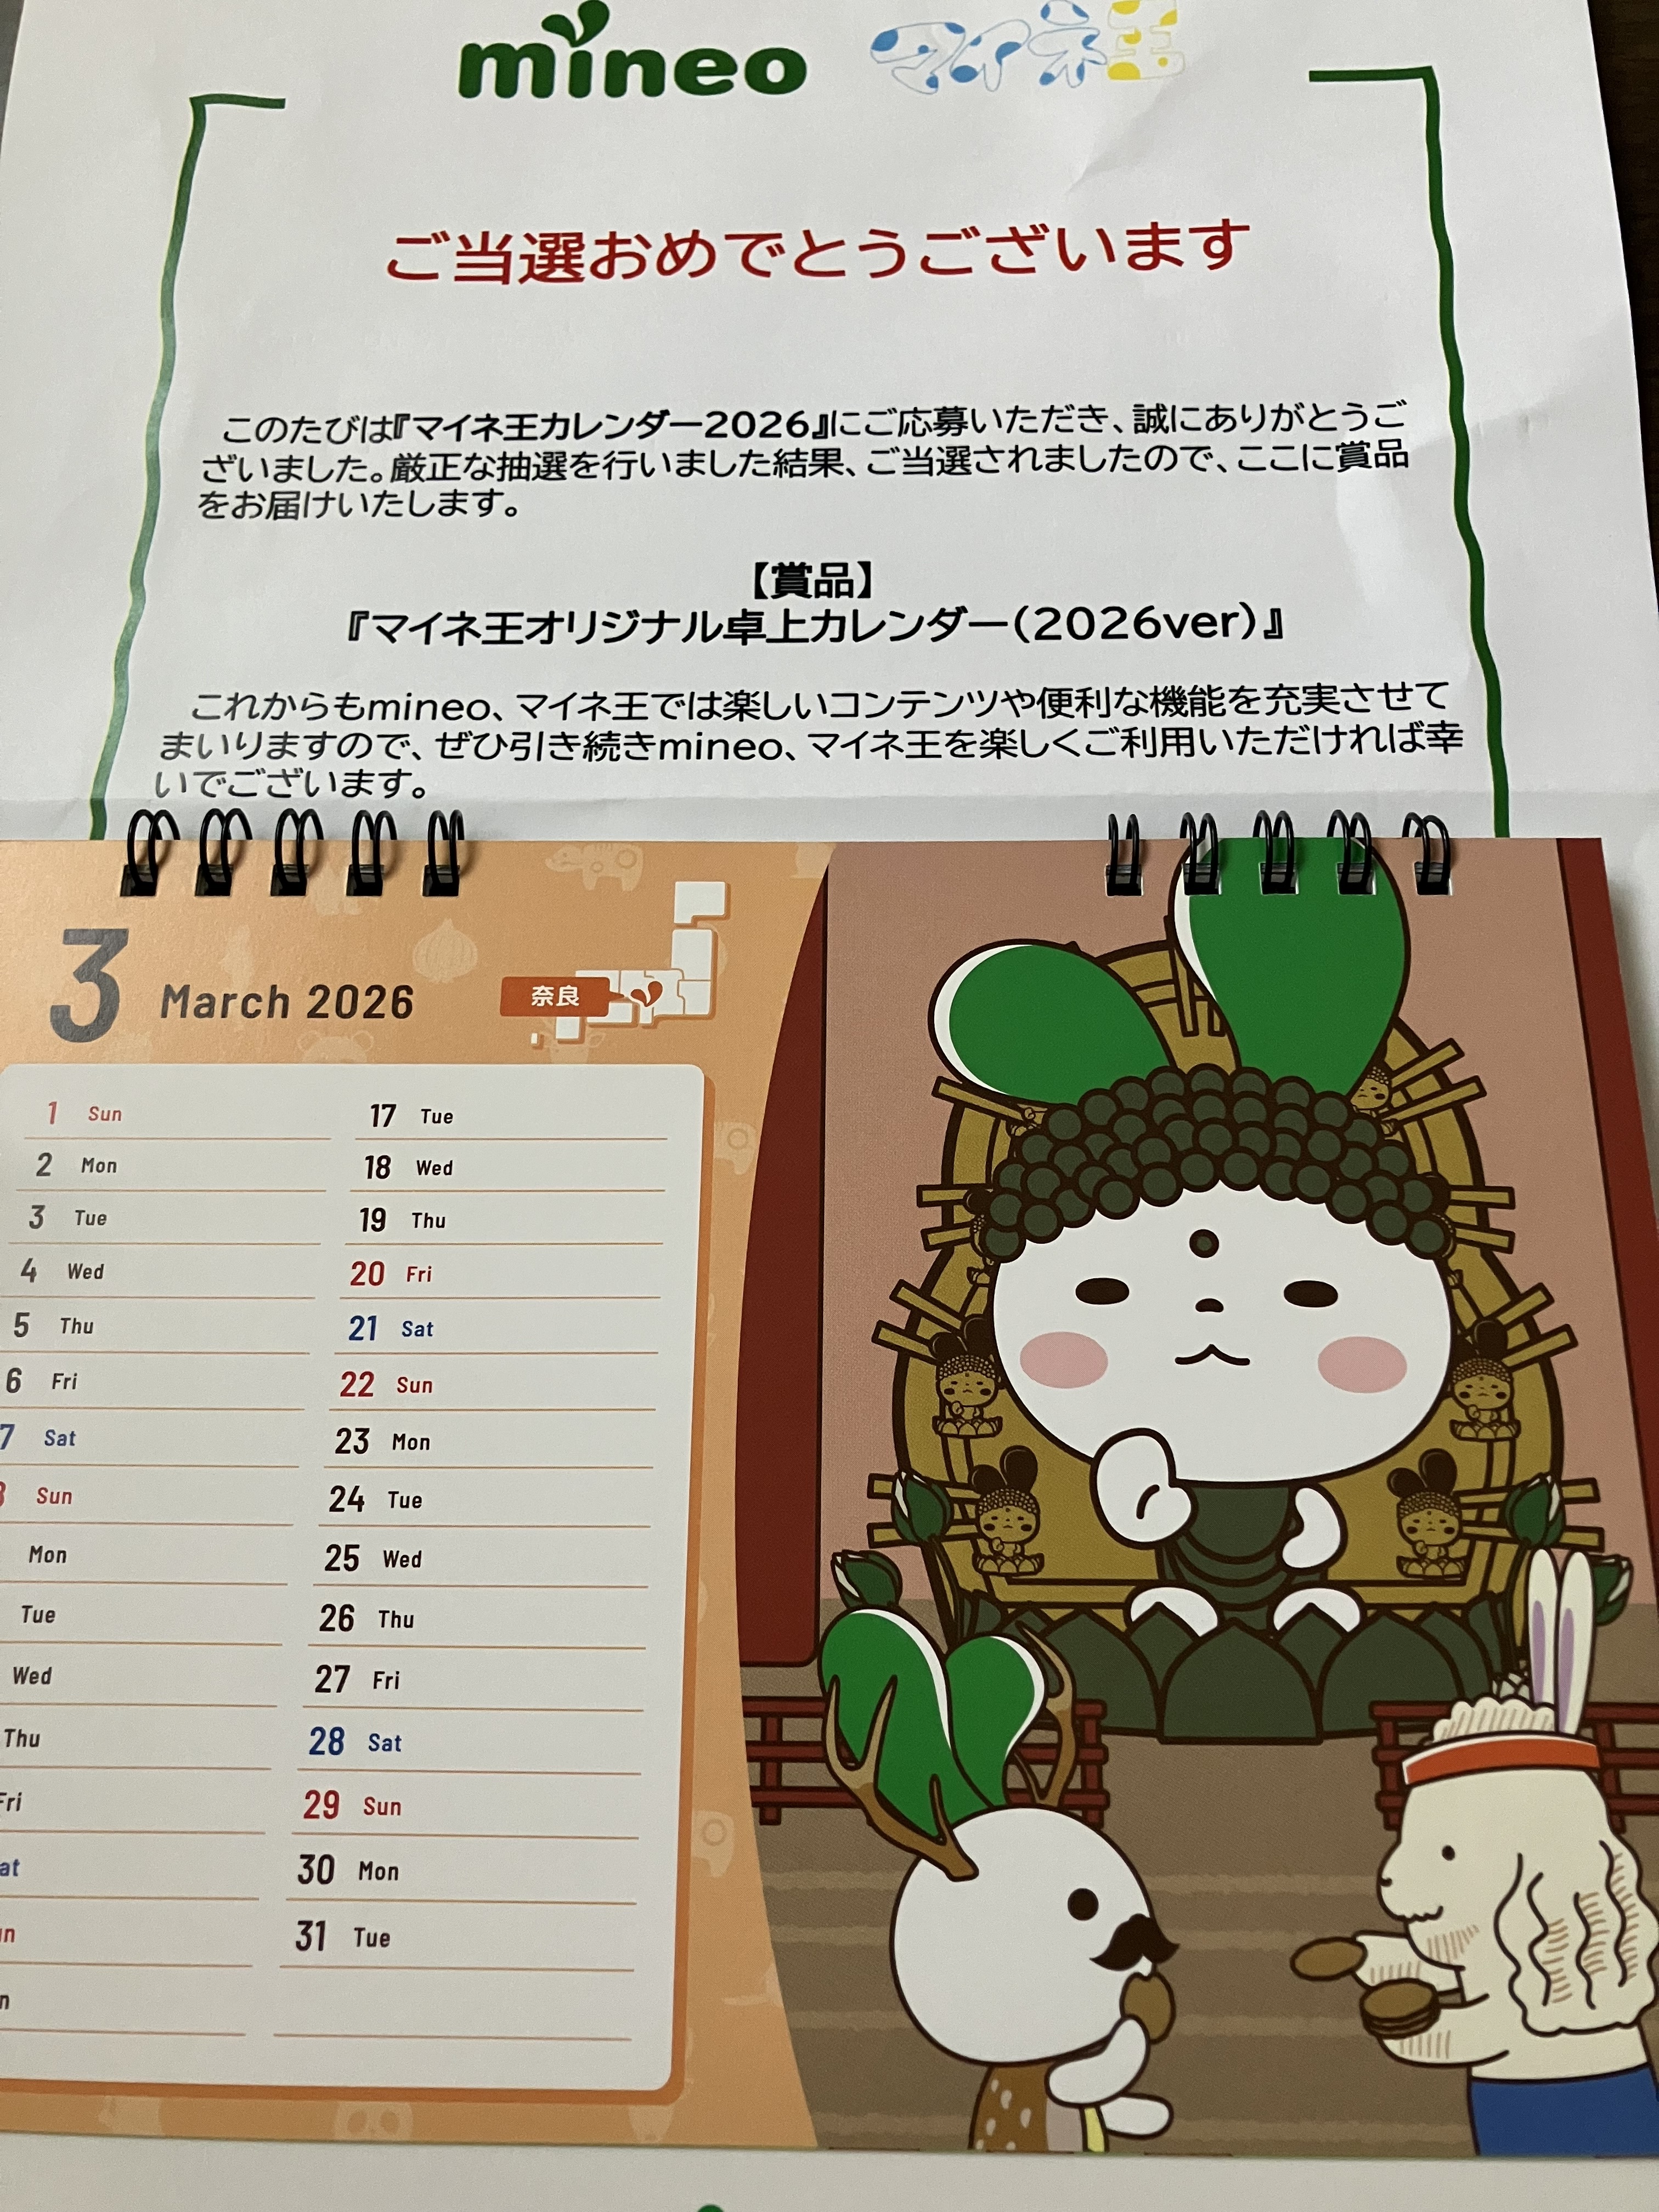 mineo マイネ王
ご当選おめでとうございます
このたびは『マイネ王カレンダー2026』にご応募いただき、誠にありがとうご
ざいました。厳正な抽選を行いました結果、ご当選されましたので、ここに賞品
をお届けいたします。
【賞品】
『マイネ王オリジナル卓上カレンダー(2026ver)』
これからもmineo、マイネ王では楽しいコンテンツや便利な機能を充実させて
まいりますので、ぜひ引き続きmineo、マイネ王を楽しくご利用いただければ幸
いでございます。
3 March 2026
奈良
1 Sun
2 Mon
3 Tue
4 Wed
5 Thu
6 Fri
7 Sat
Sun
Mon
Tue
Wed
Thu
Fri
17 Tue
18 Wed
19 Thu
20 Fri
21 Sat
22 Sun
23 Mon
24 Tue
25 Wed
26 Thu
27 Fri
28 Sat
29 Sun
30 Mon
31 Tue